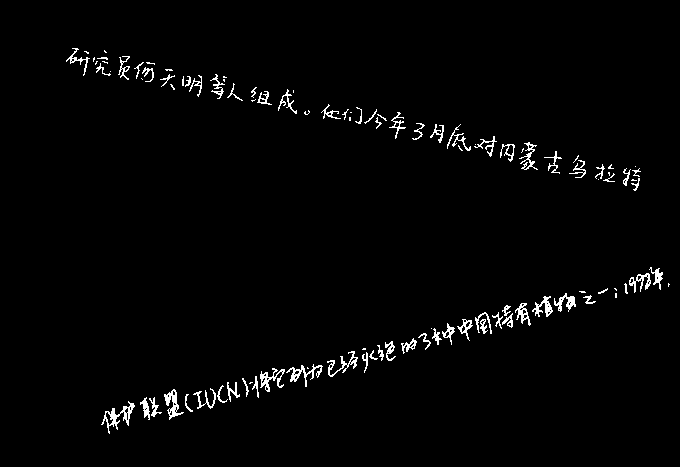 研究员何天明等人组成。他们今年3月底对内蒙古乌拉特
保护联盟(IUCN)将它列为已经灭绝的3种中国特有植物之一；1998年，